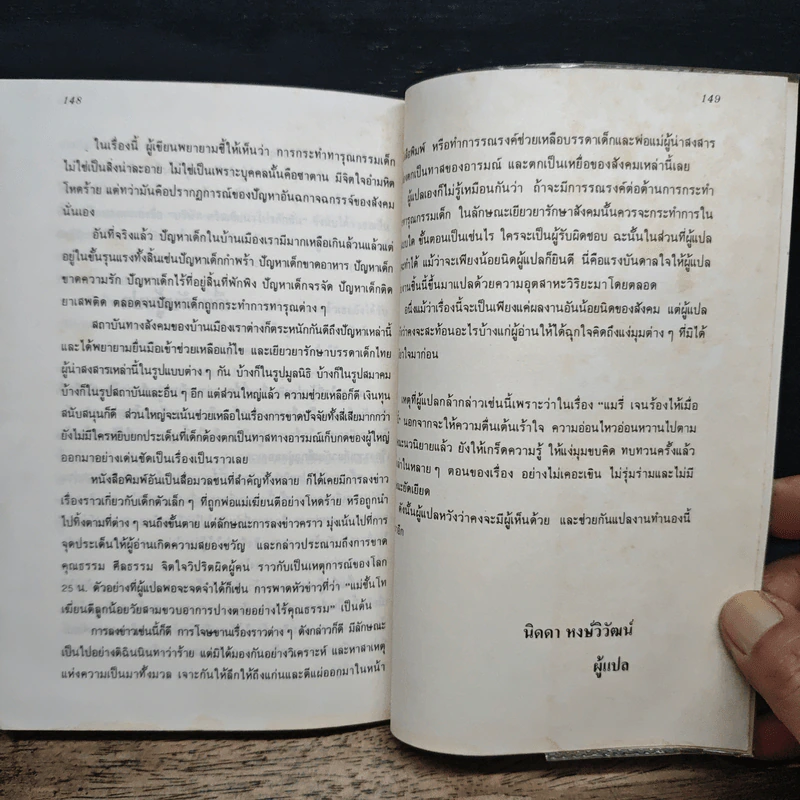 148
ในเรื่องนี้ ผู้เขียนพยายามชี้ให้เห็นว่า การกระทำทารุณกรรมเด็ก
ไม่ใช่เป็นสิ่งน่าละอาย ไม่ใช่เป็นเพราะบุคคลนั้นคือซาตาน มีจิตใจอำมหิต
โหดร้าย แต่ทว่ามันคือปรากฏการณ์ของปัญหาอันฉกาจฉกรรจ์ของสังคม
นั่นเอง
อันที่จริงแล้ว ปัญหาเด็กในบ้านเมืองเรามีมากเหลือเกินล้วนแล้วแต่
อยู่ในขั้นรุนแรงทั้งสิ้นเช่นปัญหาเด็กกำพร้า ปัญหาเด็กขาดอาหาร ปัญหาเด็ก
ขาดความรัก ปัญหาเด็กไร้ที่อยู่สิ้นที่พักพิง ปัญหาเด็กจรจัด ปัญหาเด็กติด
ยาเสพติด ตลอดจนปัญหาเด็กถูกกระทำการทารุณต่าง ๆ
สถาบันทางสังคมของบ้านเมืองเราต่างก็ตระหนักกันดีถึงปัญหาเหล่านี้
และได้พยายามยื่นมือเข้าช่วยเหลือแก้ไข และเยียวยารักษาบรรดาเด็กไทย
ผู้น่าสงสารเหล่านี้ในรูปแบบต่าง ๆ กัน บ้างก็ในรูปมูลนิธิ บ้างก็ในรูปสมาคม
บ้างก็ในรูปสถาบันและอื่น ๆ อีก แต่ส่วนใหญ่แล้ว ความช่วยเหลือก็ดี เงินทุน
สนับสนุนก็ดี ส่วนใหญ่จะเน้นช่วยเหลือในเรื่องการขาดปัจจัยทั้งสี่เสียมากกว่า
ยังไม่มีใครหยิบยกประเด็นที่เด็กต้องตกเป็นทาสทางอารมณ์เก็บกดของผู้ใหญ่
ออกมาอย่างเด่นชัดเป็นเรื่องเป็นราวเลย
หนังสือพิมพ์อันเป็นสื่อมวลชนที่สำคัญทั้งหลาย ก็ได้เคยมีการลงข่าว
เรื่องราวเกี่ยวกับเด็กตัวเล็ก ๆ ที่ถูกพ่อแม่เฆี่ยนตีอย่างโหดร้าย หรือถูกนำ
ไปทิ้งตามที่ต่าง ๆ จนถึงขั้นตาย แต่ลักษณะการลงข่าวคราว มุ่งเน้นไปที่การ
จุดประเด็นให้ผู้อ่านเกิดความสยองขวัญ และกล่าวประณามถึงการขาด
คุณธรรม ศีลธรรม จิตใจวิปริตผิดผู้คน ราวกับเป็นเหตุการณ์ของโลก
25 น. ตัวอย่างที่ผู้แปลพอจะจดจำได้ก็เช่น การพาดหัวข่าวที่ว่า “แม่ชั้นโท
เฆี่ยนตีลูกน้อยวัยสามขวบอาการปางตายอย่างไร้คุณธรรม” เป็นต้น
การลงข่าวเช่นนี้ก็ดี การโจษขานเรื่องราวต่าง ๆ ดังกล่าวก็ดี มีลักษณะ
เป็นไปอย่างติฉินนินทาว่าร้าย แต่มิได้มองกันอย่างวิเคราะห์ และหาสาเหตุ
แห่งความเป็นมาทั้งมวล เจาะกันให้ลึกให้ถึงแก่นและตีแผ่ออกมาในหน้า
149
หรือทำการรณรงค์ช่วยเหลือบรรดาเด็กและพ่อแม่ผู้น่าสงสาร
ตกเป็นทาสของอารมณ์ และตกเป็นเหยื่อของสังคมเหล่านี้เลย
ผู้แปลเองก็ไม่รู้เหมือนกันว่า ถ้าจะมีการรณรงค์ต่อต้านการกระทำ
ทารุณกรรมเด็ก ในลักษณะเยียวยารักษาสังคมนั้นควรจะกระทำการใน
แบบใด ขั้นตอนเป็นเช่นไร ใครจะเป็นผู้รับผิดชอบ ฉะนั้นในส่วนที่ผู้แปล
ได้ แม้ว่าจะเพียงน้อยนิดผู้แปลก็ยินดี นี่คือแรงบันดาลใจให้ผู้แปล
งานชิ้นนี้ขึ้นมาแปลด้วยความอุตสาหะวิริยะมาโดยตลอด
อนึ่งแม้ว่าเรื่องนี้จะเป็นเพียงแค่ผลงานอันน้อยนิดของสังคม แต่ผู้แปล
ว่าคงจะสะท้อนอะไรบ้างแก่ผู้อ่านให้ได้ฉุกใจคิดถึงแง่มุมต่าง ๆ ที่มิได้
ใจมาก่อน
เหตุที่ผู้แปลกล้ากล่าวเช่นนี้เพราะว่าในเรื่อง “แมรี่ เจนร้องให้เมื่อ
นอกจากจะให้ความตื่นเต้นเร้าใจ ความอ่อนไหวอ่อนหวานไปตาม
นวนิยายแล้ว ยังให้เกร็ดความรู้ ให้แง่มุมขบคิด ทบทวนครั้งแล้ว
ในหลาย ๆ ตอนของเรื่อง อย่างไม่เคอะเขิน ไม่รุ่มร่ามและไม่มี
ยัดเยียด
ดังนั้นผู้แปลหวังว่าคงจะมีผู้เห็นด้วย และช่วยกันแปลงานทำนองนี้
อีก
นิดดา หงษ์วิวัฒน์
ผู้แปล